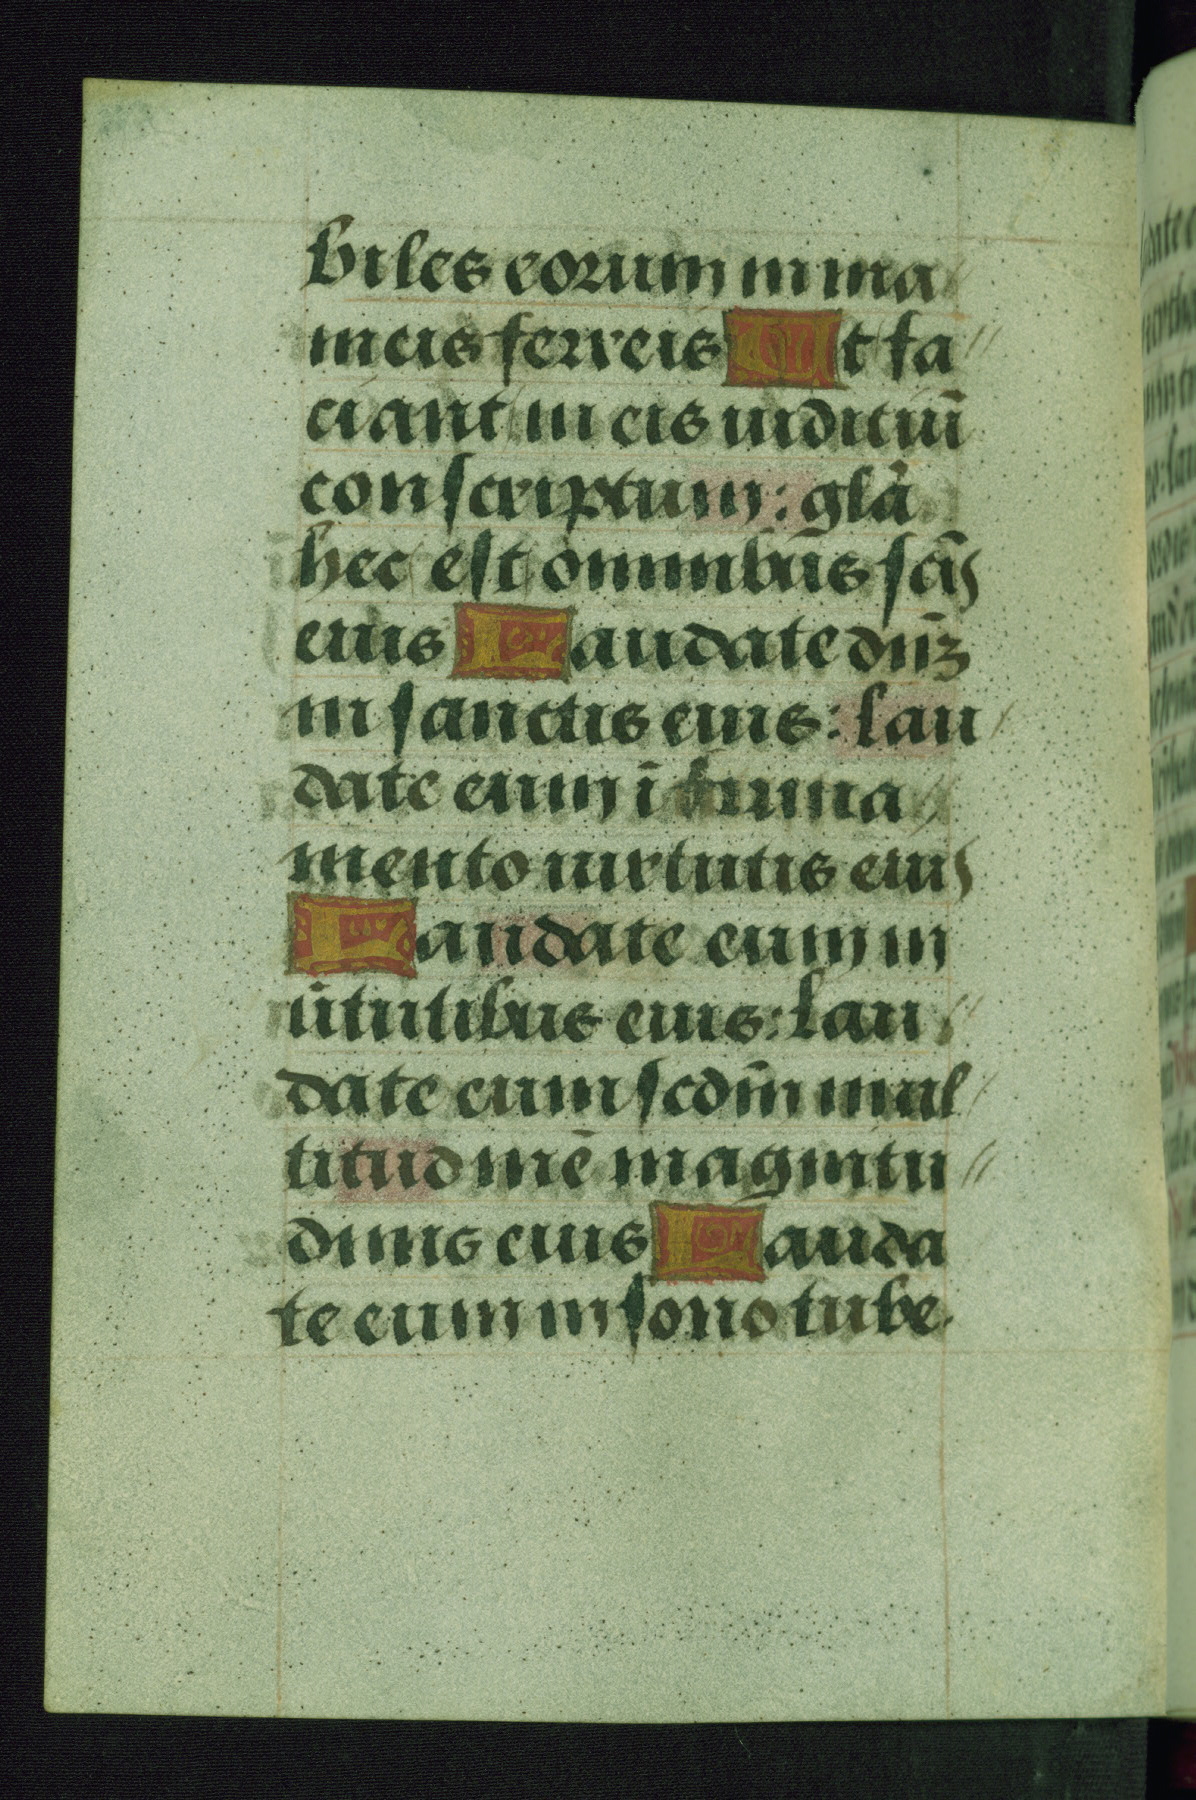 biles eorum in ma
nicis ferreis Ut fa
ciant in eis iudiciũ
conscriptum: glã
hec est omnnibus scĩs
eius Laudate dñʒ
in sanctis eius: lau
date eum ĩ firma
mento uirtutis eius
Laudate eum in
ũtutibus eius: lau
date eum scdm̃ mul
titudinẽ magnitu
dinis eius Lauda
te eum in sono tube.